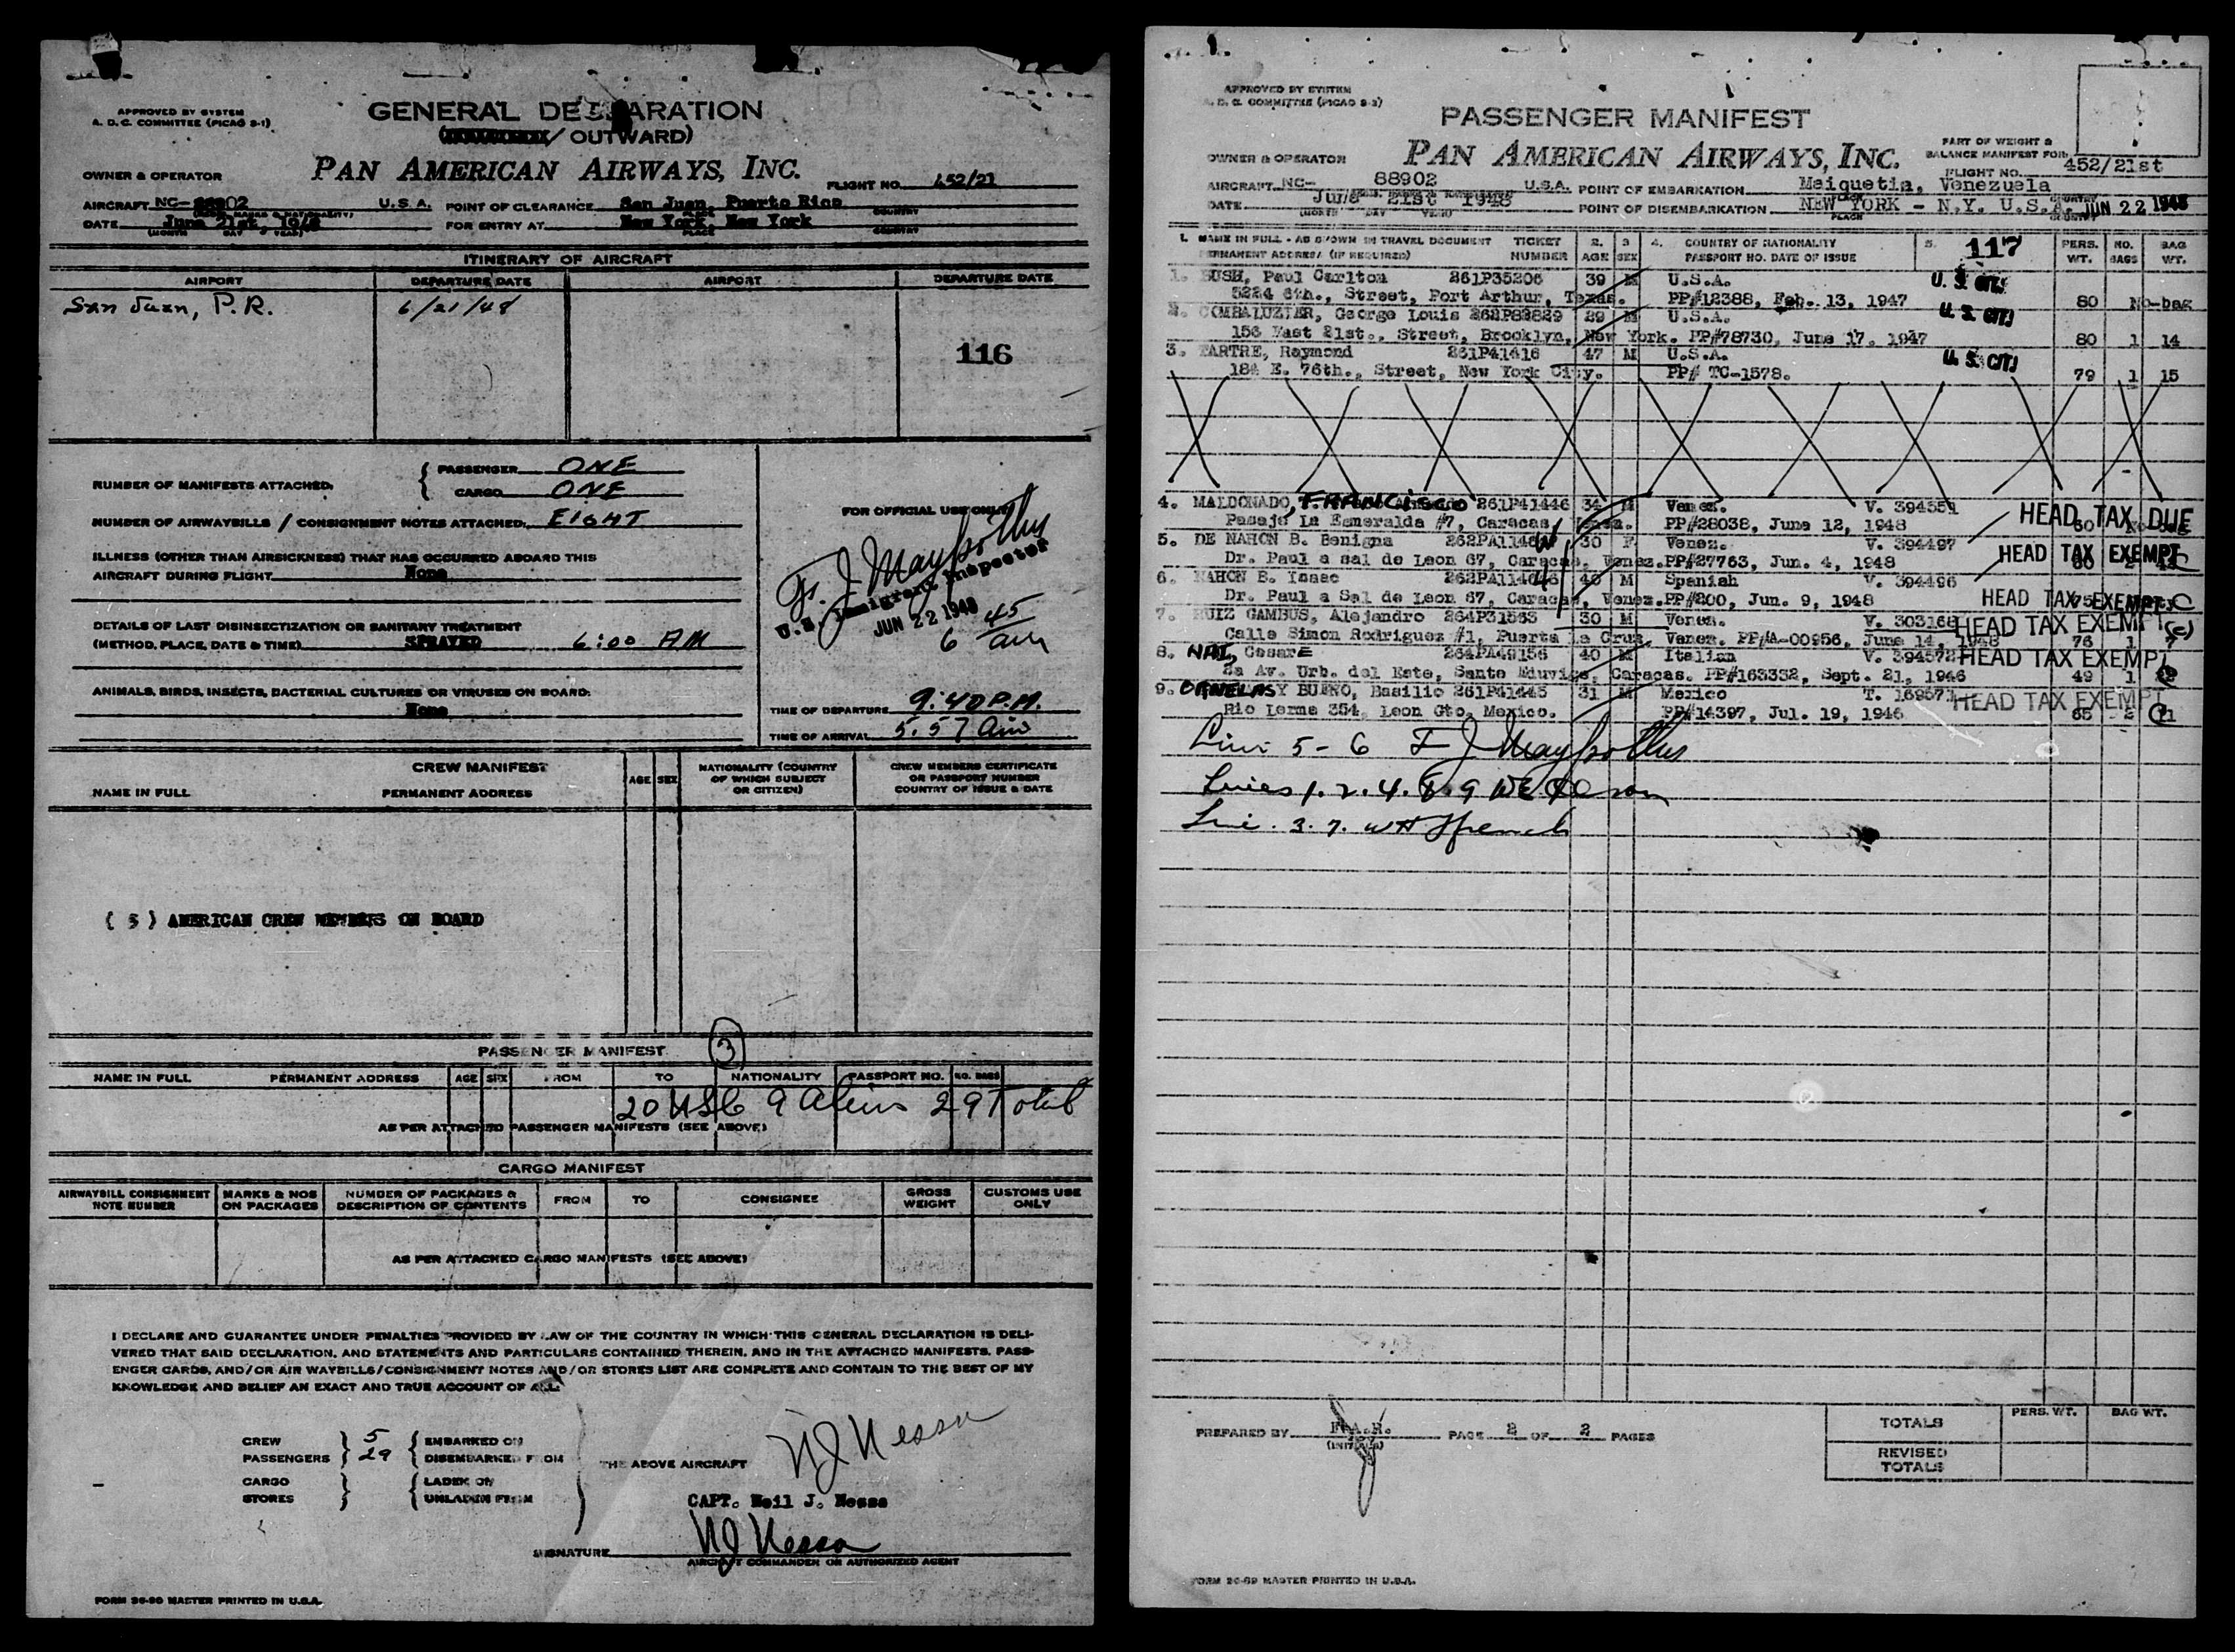 APPROVED BY SYSTEM
A. D. C. COMMITTEE (PICAO S-1)
GENERAL DECLARATION
/ OUTWARD)
OWNER & OPERATOR
PAN AMERICAN AIRWAYS, INC.
FLIGHT NO. 452/21
AIRCRAFT NC- 88902 U.S.A. POINT OF CLEARANCE San Juan, Puerto Rico
DATE June 21st, 1948 FOR ENTRY AT New York, New York
(MONTH DAY YEAR) PLACE COUNTRY
ITINERARY OF AIRCRAFT
AIRPORT DEPARTURE DATE AIRPORT DEPARTURE DATE
San Juan, P.R. 6/21/48
116
NUMBER OF MANIFESTS ATTACHED.
PASSENGER ONE
CARGO ONE
NUMBER OF AIRWAYBILLS / CONSIGNMENT NOTES ATTACHED. EIGHT
ILLNESS (OTHER THAN AIRSICKNESS) THAT HAS OCCURRED ABOARD THIS
AIRCRAFT DURING FLIGHT None
DETAILS OF LAST DISINSECTIZATION OR SANITARY TREATMENT
(METHOD, PLACE, DATE & TIME) SPRAYED 6:00 AM
ANIMALS, BIRDS, INSECTS, BACTERIAL CULTURES OR VIRUSES ON BOARD:
None
FOR OFFICIAL USE ONLY
U.S. Immigrant Inspector
JUN 22 1948
6 45 am
TIME OF DEPARTURE 9:40 P.M.
TIME OF ARRIVAL 5:57 am
CREW MANIFEST
NAME IN FULL PERMANENT ADDRESS AGE SEX
NATIONALITY (COUNTRY OF WHICH SUBJECT OR CITIZEN)
CREW MEMBERS CERTIFICATE OR PASSPORT NUMBER COUNTRY OF ISSUE & DATE
( 5 ) AMERICAN CREW MEMBERS ON BOARD
PASSENGER MANIFEST 3
NAME IN FULL PERMANENT ADDRESS AGE SEX FROM TO NATIONALITY PASSPORT NO. NO. BAGS
20 USC 9 Aliens 29 Total
AS PER ATTACHED PASSENGER MANIFESTS (SEE ABOVE)
CARGO MANIFEST
AIRWAYBILL CONSIGNMENT NOTE NUMBER
MARKS & NOS ON PACKAGES
NUMBER OF PACKAGES & DESCRIPTION OF CONTENTS
FROM TO CONSIGNEE GROSS WEIGHT CUSTOMS USE ONLY
AS PER ATTACHED CARGO MANIFESTS (SEE ABOVE)
I DECLARE AND GUARANTEE UNDER PENALTIES PROVIDED BY LAW OF THE COUNTRY IN WHICH THIS GENERAL DECLARATION IS DELI-
VERED THAT SAID DECLARATION, AND STATEMENTS AND PARTICULARS CONTAINED THEREIN, AND IN THE ATTACHED MANIFESTS, PASS-
ENGER CARDS, AND/OR AIR WAYBILLS/CONSIGNMENT NOTES AND/OR STORES LIST ARE COMPLETE AND CONTAIN TO THE BEST OF MY
KNOWLEDGE AND BELIEF AN EXACT AND TRUE ACCOUNT OF ALL:
CREW 5 EMBARKED ON
PASSENGERS 29 DISEMBARKED FROM
THE ABOVE AIRCRAFT
CARGO LADEN ON
STORES UNLADEN FROM
NJ Nessa
CAPT. Neil J. Nessa
SIGNATURE NJ Nessa
AIRCRAFT COMMANDER OR AUTHORIZED AGENT
FORM 26-90 MASTER PRINTED IN U.S.A.
APPROVED BY SYSTEM
A. D. C. COMMITTEE (PICAO S-2)
PASSENGER MANIFEST
OWNER & OPERATOR
PAN AMERICAN AIRWAYS, INC.
PART OF WEIGHT &
BALANCE MANIFEST FOR:
FLIGHT NO. 452/21st
AIRCRAFT NC- 88902 U.S.A. POINT OF EMBARKATION Maiquetia, Venezuela
DATE June 21st 1948 POINT OF DISEMBARKATION NEW YORK - N.Y. U.S.A. JUN 22 1948
(MONTH DAY YEAR) PLACE
1. NAME IN FULL - AS SHOWN IN TRAVEL DOCUMENT
PERMANENT ADDRESS (IF REQUIRED)
TICKET NUMBER
2. AGE
3 SEX
4. COUNTRY OF NATIONALITY
PASSPORT NO. DATE OF ISSUE
5. 117
PERS. WT.
NO. BAGS
BAG WT.
1. BUSH, Paul Carlton 261P35206 39 M U.S.A. U. S. CIT.
5224 6th., Street, Port Arthur, Texas. PP#12388, Feb. 13, 1947 80 No-bag
2. COMBALUZIER, George Louis 262P82829 29 M U.S.A. U. S. CIT.
156 East 21st., Street, Brooklyn, New York. PP#78730, June 17, 1947 80 1 14
3. TARTRE, Raymond 261P41416 47 M U.S.A. U. S. CIT.
184 E. 76th., Street, New York City. PP# TC-1578. 79 1 15
4. MALDONADO, FRANCISCO 261P41446 34 M Venez. V. 394551 HEAD TAX DUE
Pasaje La Esmeralda #7, Caracas, Venez. PP#28038, June 12, 1948
5. DE NAHON B. Benigna 30 F Venez. V. 394497
Dr. Paul a sal de Leon 67, Caracas, Venez. PP#27763, Jun. 4, 1948 HEAD TAX EXEMPT
6. NAHON B. Isaac 40 M Spanish V. 394496
Dr. Paul a Sal de Leon 67, Caracas, Venez. PP#200, Jun. 9, 1948 HEAD TAX EXEMPT
7. RUIZ GAMBUS, Alejandro 264P31563 30 M Venez. V. 303168 HEAD TAX EXEMPT (c)
Calle Simon Rodriguez #1, Puerta La Cruz, Venez. PP#A-00956, June 14, 1948 76 1 7
8. NAI, CesarE 264PA49156 40 M Italian V. 394572 HEAD TAX EXEMPT
2a Av. Urb. del Este, Santa Eduvigs, Caracas. PP#163332, Sept. 21, 1946 49 1
9. ORNELAS Y BUENO, Basilio 261P41445 31 M Mexico T. 169571 HEAD TAX EXEMPT
Rio Lerma 354, Leon Gto, Mexico. PP#14397, Jul. 19, 1946 65 2
Line 5-6
Lines 1. 2. 4. 8. 9
Line. 3. 7. WH French
PREPARED BY F.A.R. PAGE 2 OF 2 PAGES
(INITIALS)
TOTALS PERS. WT. BAG WT.
REVISED TOTALS
FORM 26-89 MASTER PRINTED IN U.S.A.